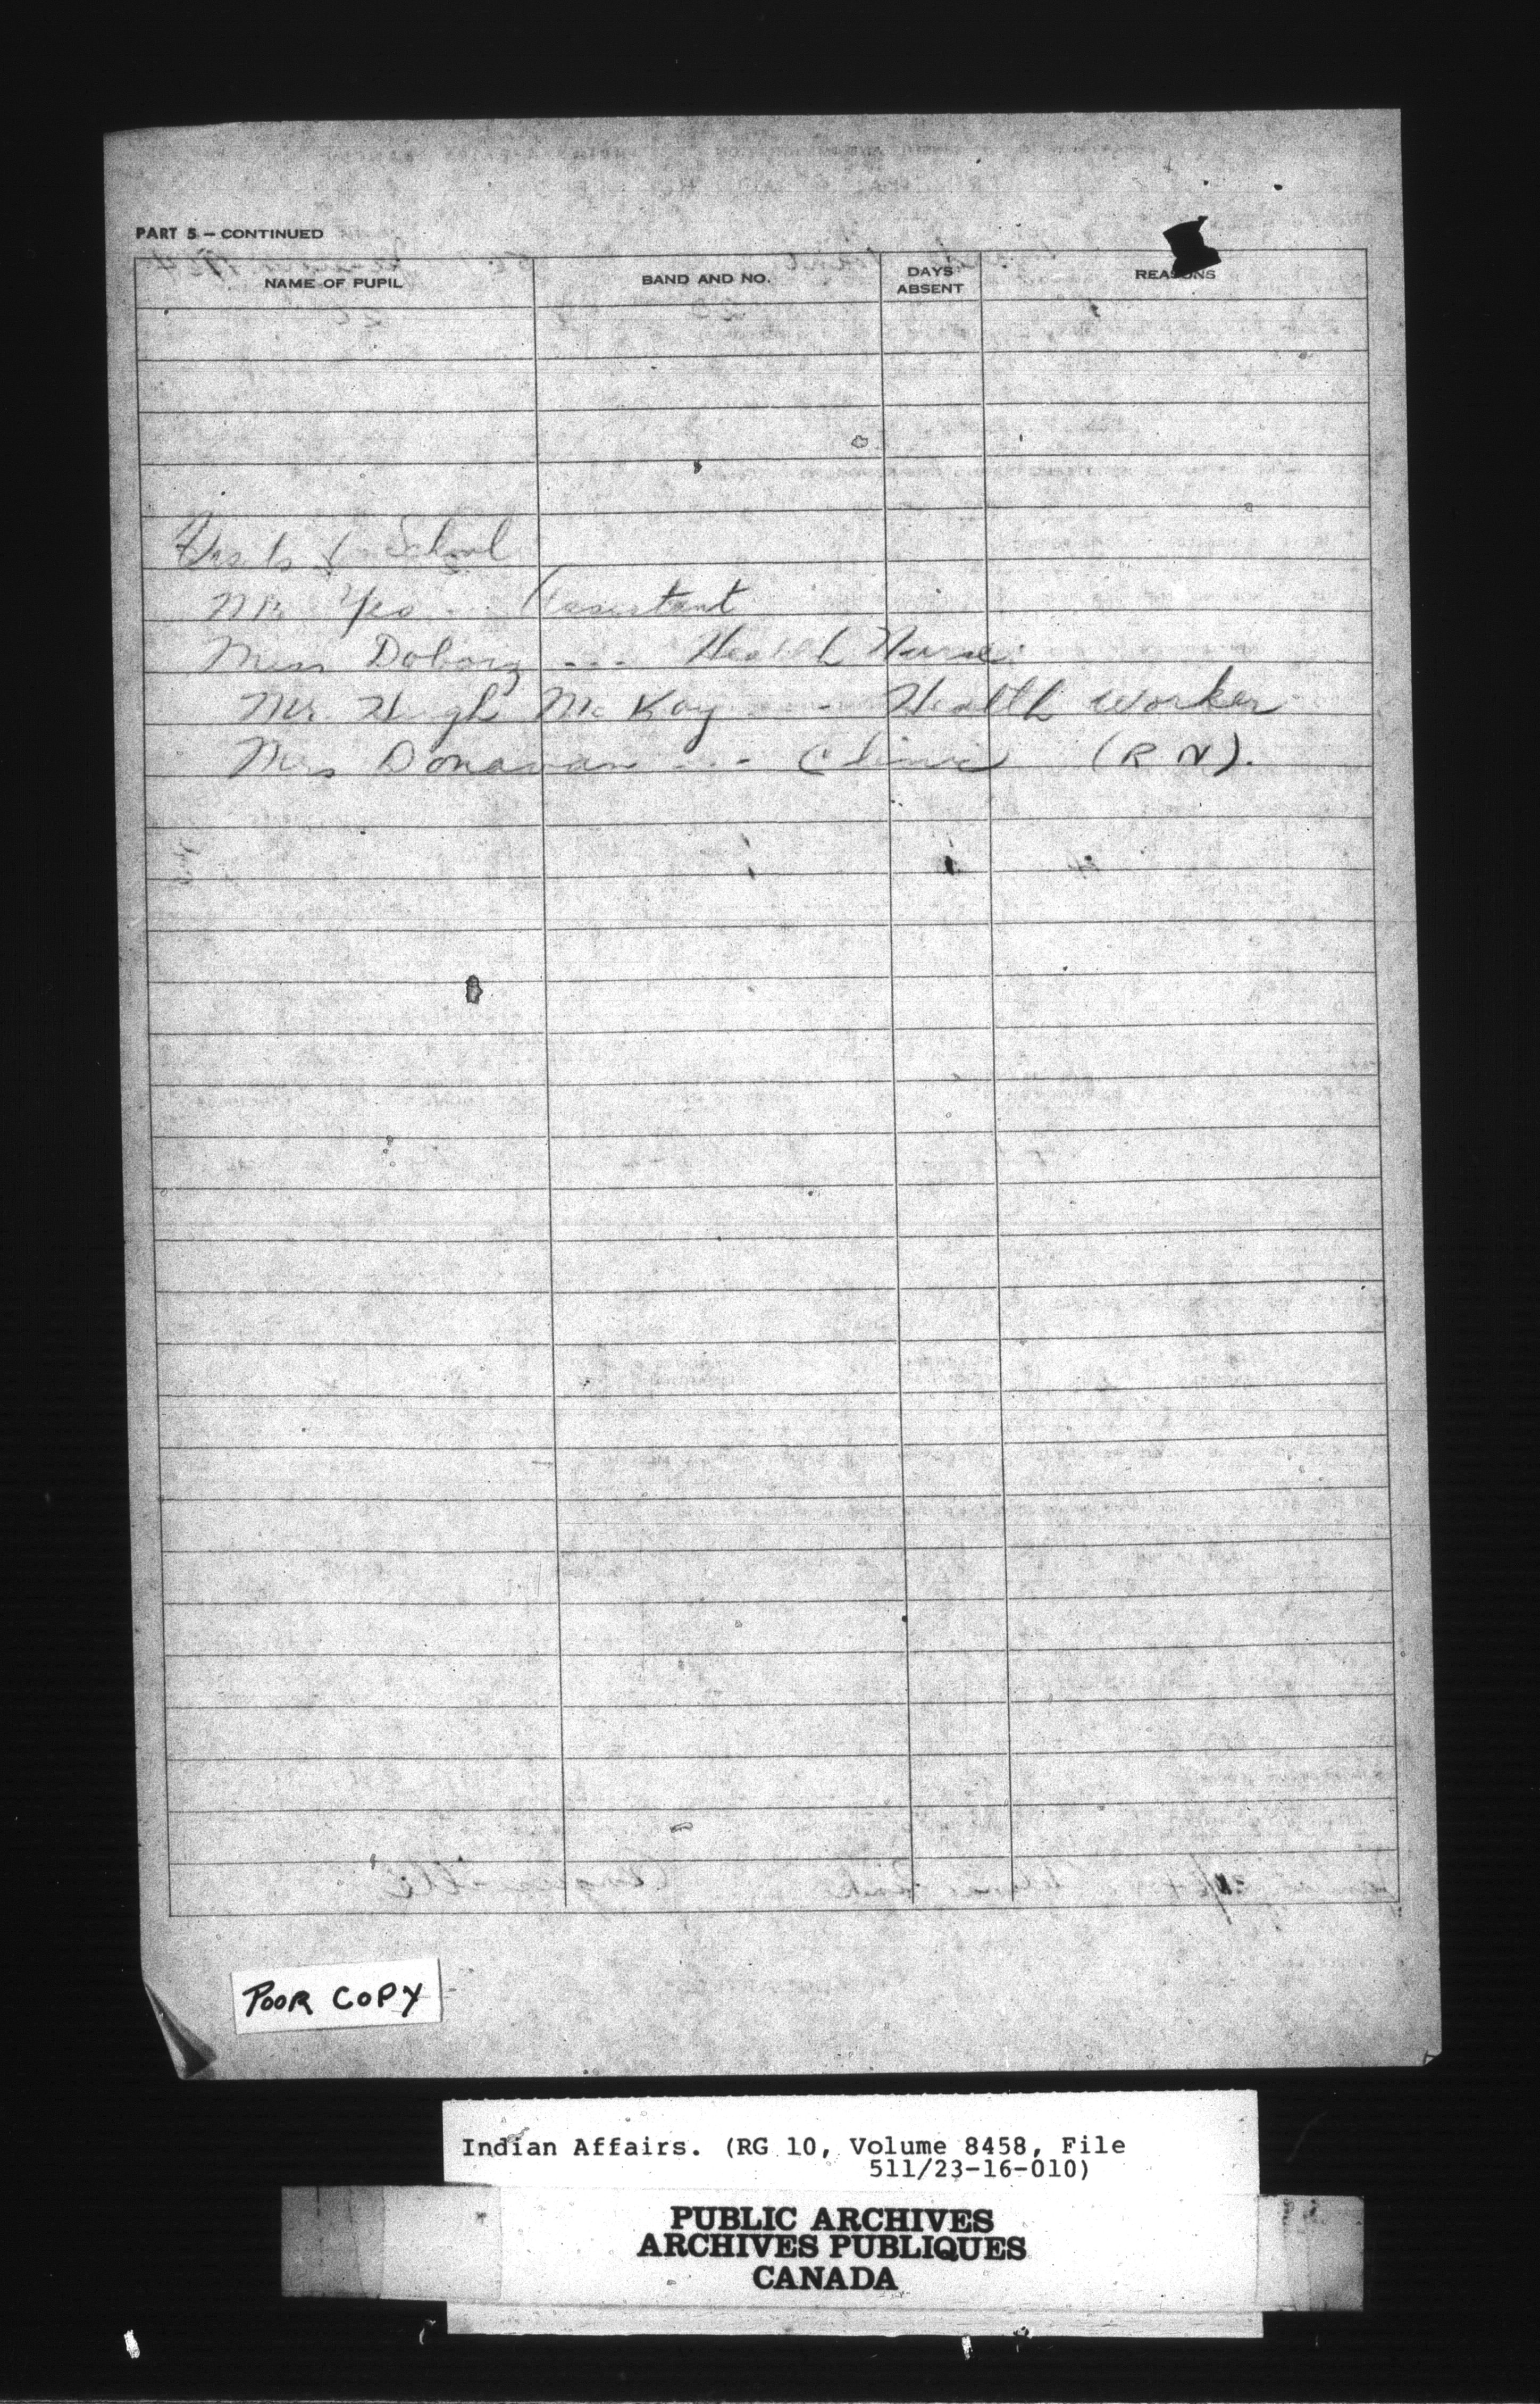 PART 5 – CONTINUED
NAME OF PUPIL BAND AND NO. DAYS ABSENT REASONS
Visits to School
Mr. Yeo ... Assistant
Miss Doborg ... Health Nurse
Mr. Hugh McKay ... Health Worker
Mrs Donavan ... Clinic (R N).
POOR COPY
Indian Affairs. (RG 10, Volume 8458, File
511/23-16-010)
PUBLIC ARCHIVES
ARCHIVES PUBLIQUES
CANADA